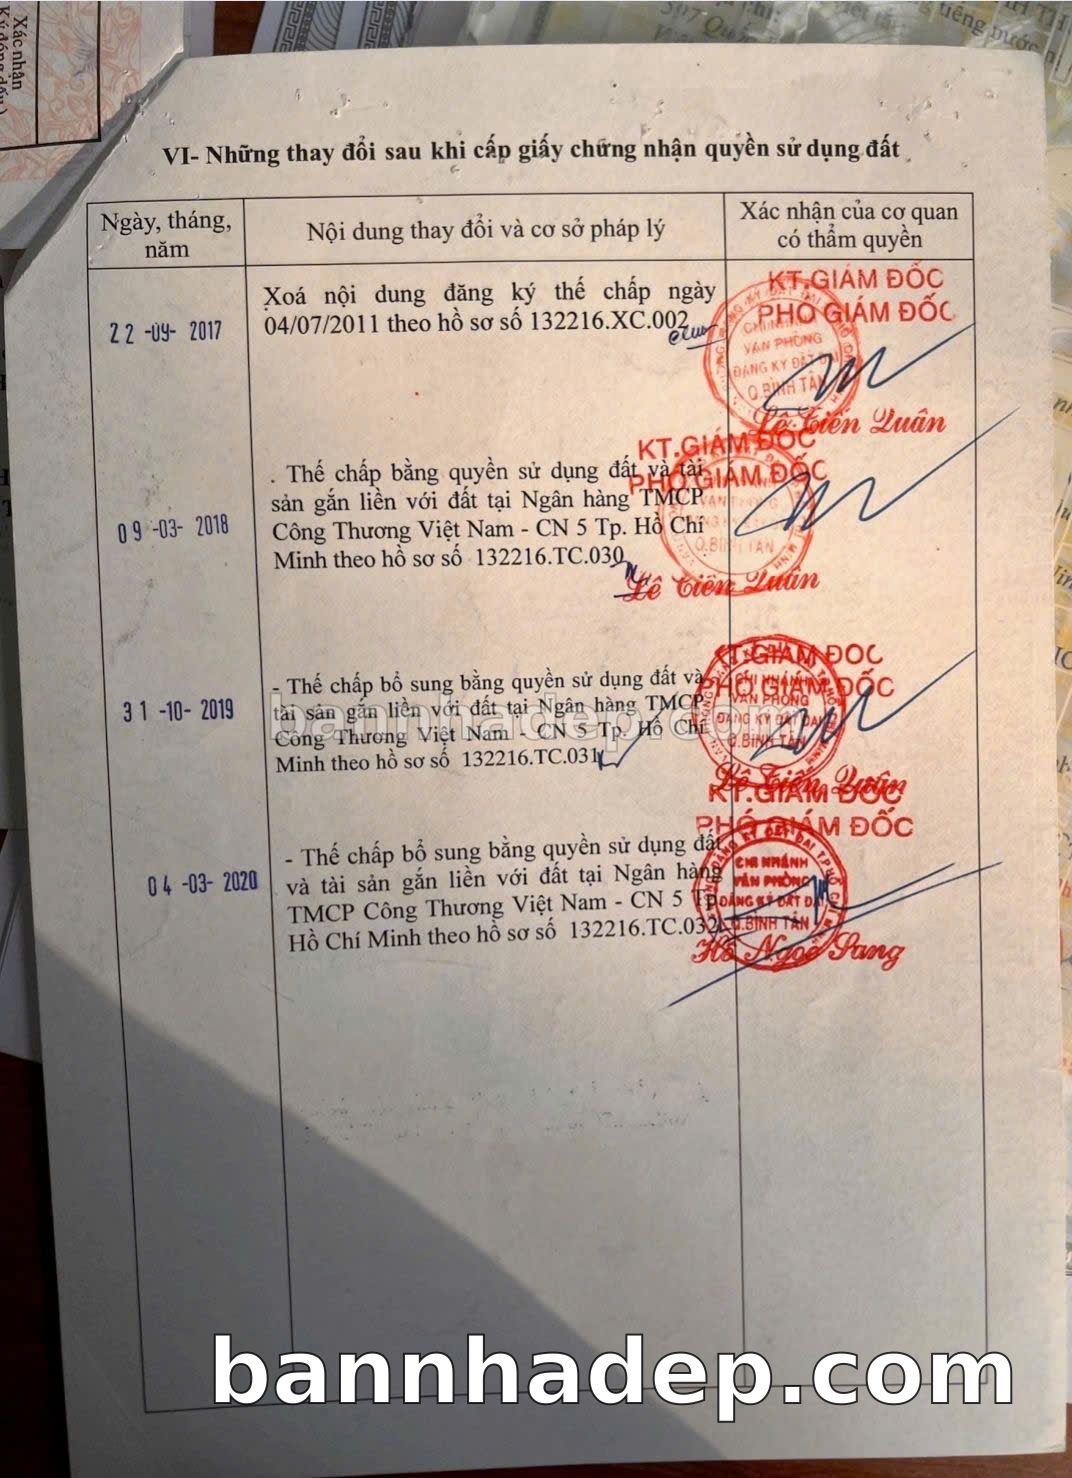 Xác nhận
VI- Những thay đổi sau khi cấp giấy chứng nhận quyền sử dụng đất
Ngày, tháng,
năm
Nội dung thay đổi và cơ sở pháp lý
Xác nhận của cơ quan
có thẩm quyền
22 -09- 2017
Xoá nội dung đăng ký thế chấp ngày
04/07/2011 theo hồ sơ số 132216.XC.002
KT.GIÁM ĐỐC
PHÓ GIÁM ĐỐC
CHI NHÁNH
VĂN PHÒNG
ĐĂNG KÝ ĐẤT ĐAI
Q.BÌNH TÂN
Lê Tiến Quân
09 -03- 2018
. Thế chấp bằng quyền sử dụng đất và tài
sản gắn liền với đất tại Ngân hàng TMCP
Công Thương Việt Nam - CN 5 Tp. Hồ Chí
Minh theo hồ sơ số 132216.TC.030
KT.GIÁM ĐỐC
PHÓ GIÁM ĐỐC
VĂN PHÒNG
Q.BÌNH TÂN
Lê Tiến Quân
31 -10- 2019
- Thế chấp bổ sung bằng quyền sử dụng đất và
tài sản gắn liền với đất tại Ngân hàng TMCP
Công Thương Việt Nam - CN 5 Tp. Hồ Chí
Minh theo hồ sơ số 132216.TC.031
KT.GIÁM ĐỐC
PHÓ GIÁM ĐỐC
CHI NHÁNH
VĂN PHÒNG
ĐĂNG KÝ ĐẤT ĐAI
Q.BÌNH TÂN
Lê Tiến Quân
bannhadep.com
04 -03- 2020
- Thế chấp bổ sung bằng quyền sử dụng đất
và tài sản gắn liền với đất tại Ngân hàng
TMCP Công Thương Việt Nam - CN 5 Tp.
Hồ Chí Minh theo hồ sơ số 132216.TC.032
KT.GIÁM ĐỐC
PHÓ GIÁM ĐỐC
CHI NHÁNH
VĂN PHÒNG
ĐĂNG KÝ ĐẤT ĐAI
Q.BÌNH TÂN
Hồ Ngọc Sang
bannhadep.com